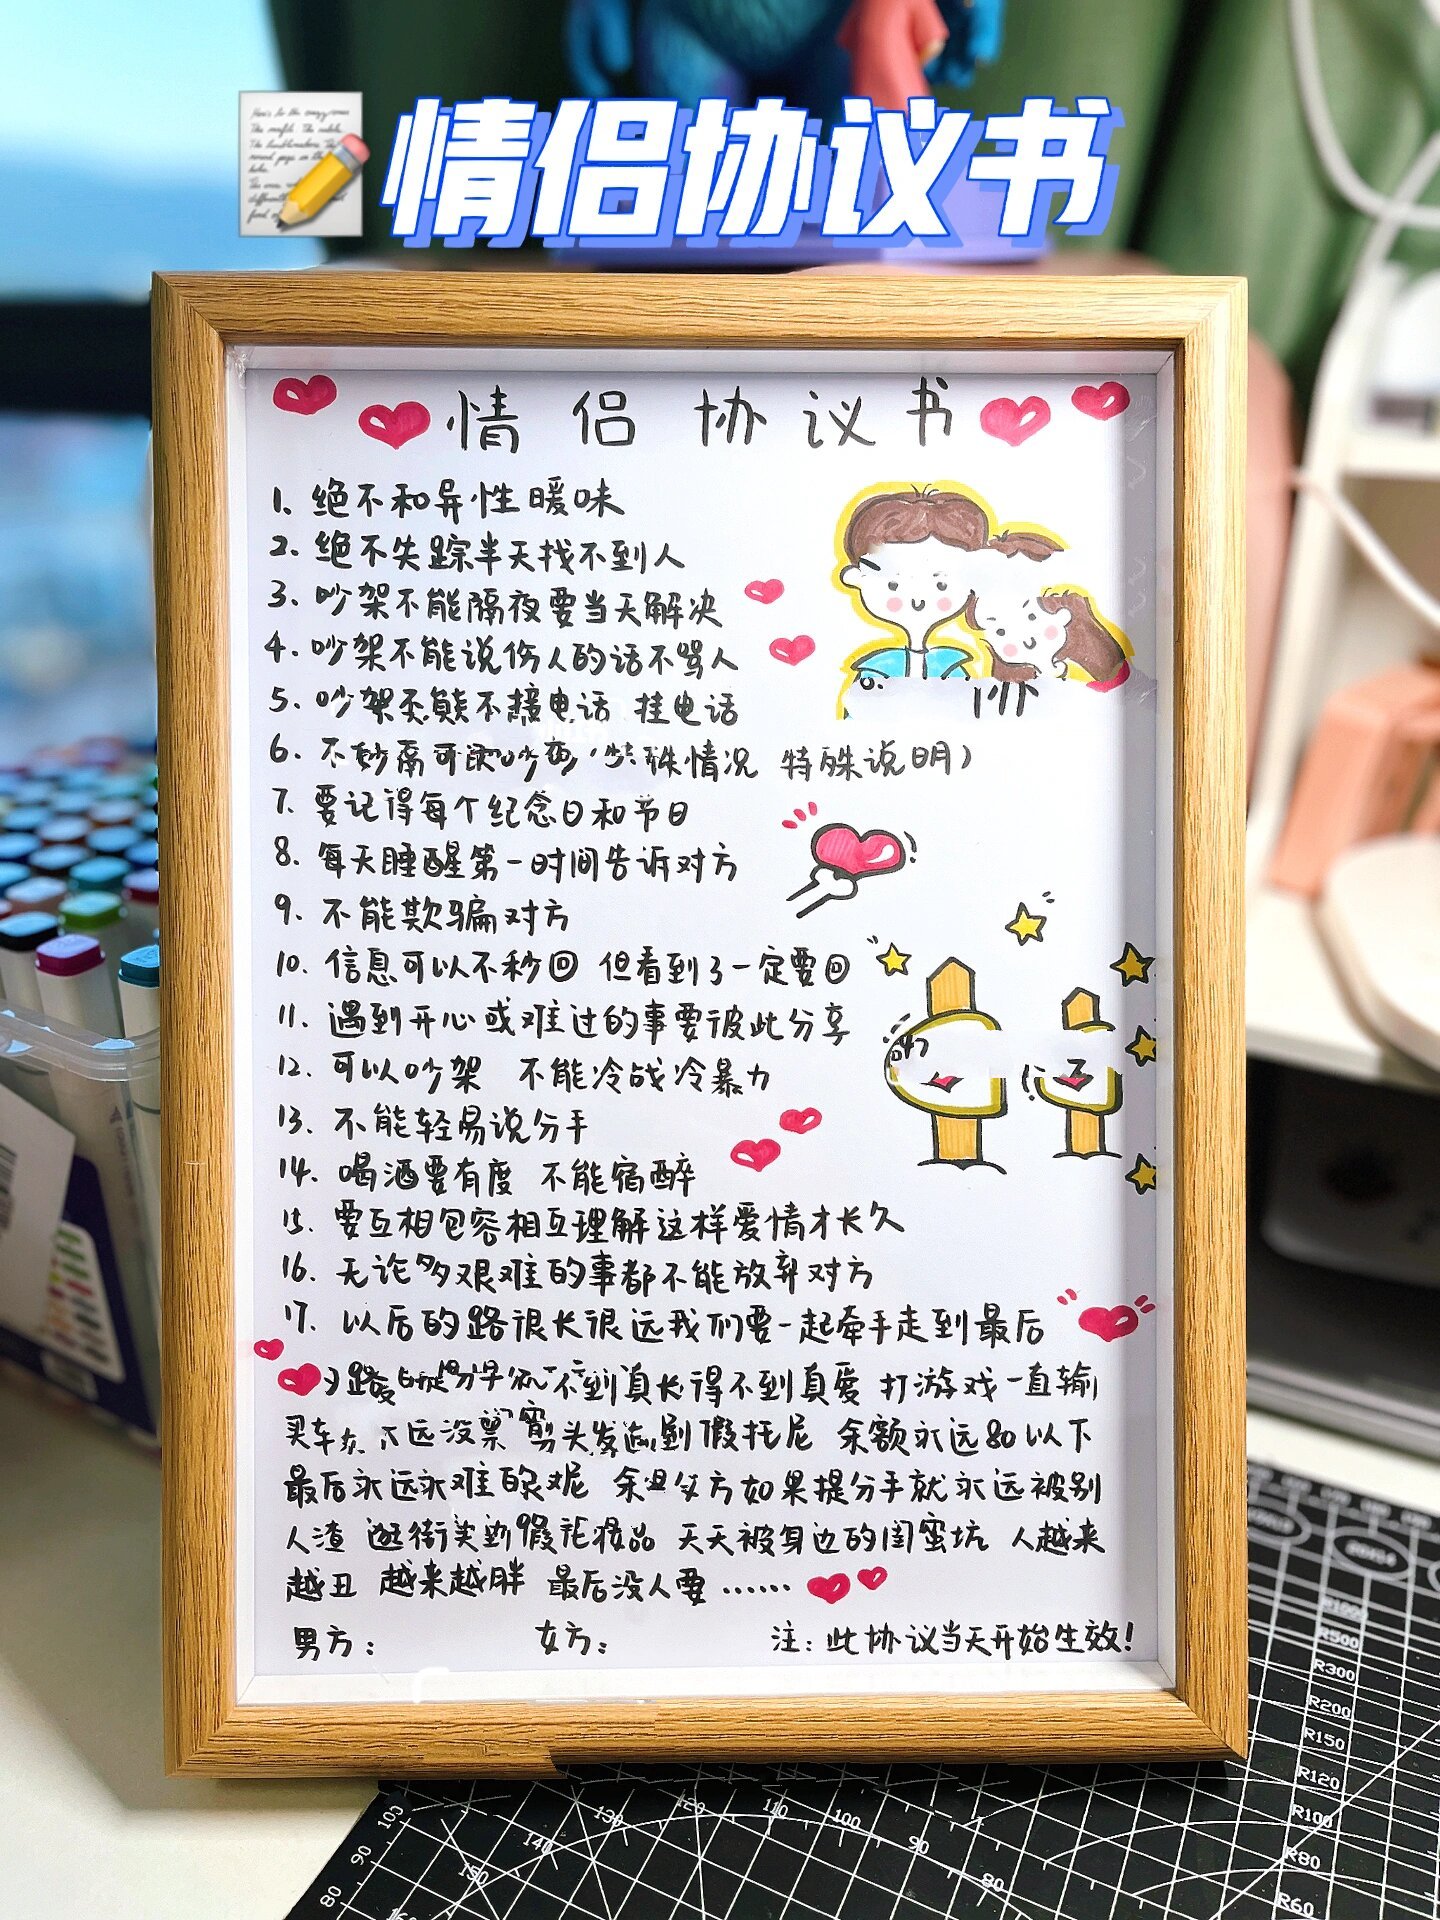 情侣协议书
情侣协议书
1. 绝不和异性暖味
2. 绝不失踪半天找不到人
3. 吵架不能隔夜要当天解决
4. 吵架不能说伤人的话不骂人
5. 吵架不能不接电话 挂电话
6. 不 情况 特殊说明)
7. 要记得每个纪念日和节日
8. 每天睡醒第一时间告诉对方
9. 不能欺骗对方
10. 信息可以不秒回 但看到了一定要回
11. 遇到开心或难过的事要彼此分享
12. 可以吵架 不能冷战冷暴力
13. 不能轻易说分手
14. 喝酒要有度 不能宿醉
15. 要互相包容相互理解这样爱情才长久
16. 无论多艰难的事都不能放弃对方
17. 以后的路很长很远我们要一起牵手走到最后
不到真 得不到真爱 打游戏一直输
买车 远没票 剪头发 到假托尼 余额永远80以下
最后永远 难 方如果提分手就永远被别
人渣 逛街买到假化妆品 天天被身边的闺蜜坑 人越来
越丑 越来越胖 最后没人要……
男方: 女方: 注:此协议当天开始生效!
R1000
R500
R300
R200
R150
R120
R100
R80
R60
100
90
80
150
140
130
120
110
100
90
80